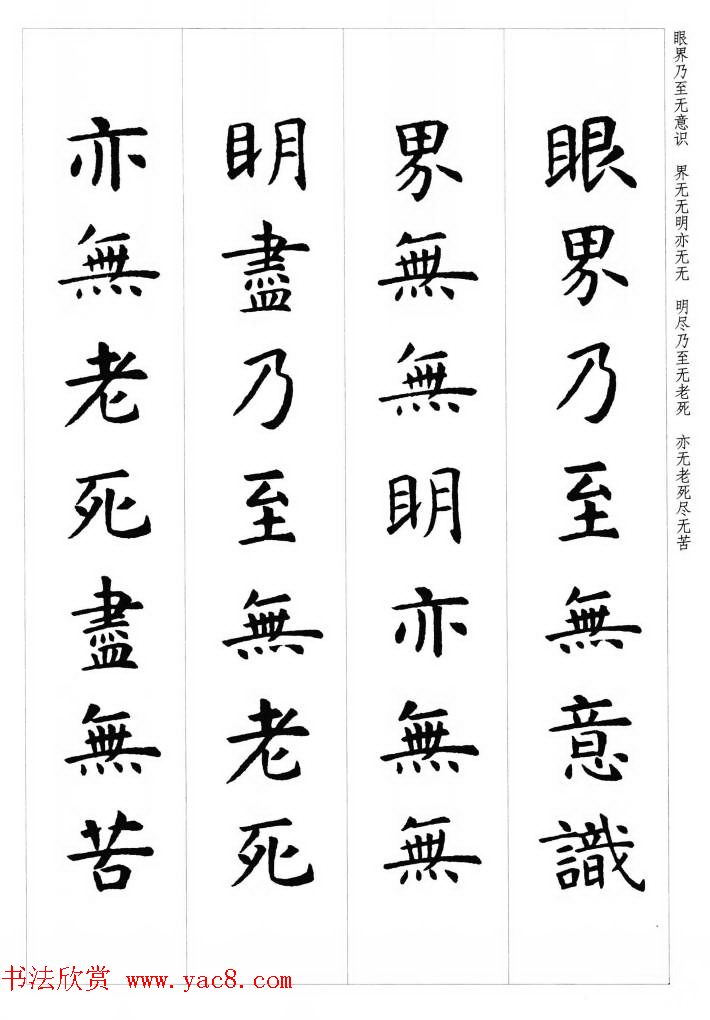 眼界乃至无意识 界无无明亦无无 明尽乃至无老死 亦无老死尽无苦
眼界乃至無意識
界無無明亦無無
明盡乃至無老死
亦無老死盡無苦
书法欣赏 www.yac8.com